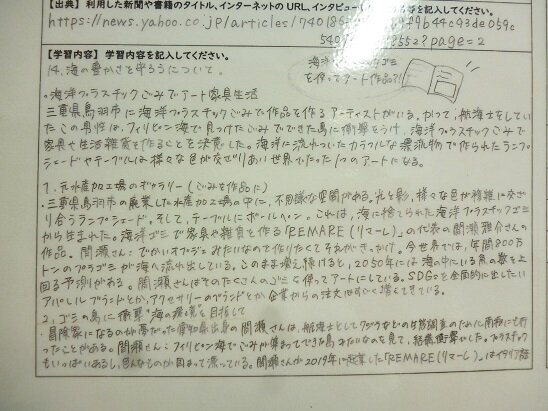 【出典】利用した新聞や書籍のタイトル、インターネットのURL、インタビュー
https://news.yahoo.co.jp/articles/
page=2
【学習内容】学習内容を記入してください。
海洋プラスチックゴミ
を使ってアート作品?!
14.海の豊かさを守ろうについて。
・海洋プラスチックごみでアート家具生活
三重県鳥羽市に海洋プラスチックごみで作品を作るアーティストがいる。かつて、航海士をしてい
たこの男性は、フィリピン海で見つけたごみでできた島に衝撃をうけ、海洋プラスチックごみで
家具や生活雑貨を作ることを決意した。海洋に流れついたカラフルな漂流物で作られたランプ
シェードやテーブルは様々な色が交ざりあい世界でたった1つのアートになる。
1. 元水産加工場のギャラリー(ごみを作品に)
・三重県鳥羽市の廃業した水産加工場の中に、不思議な空間がある。光と影、様々な色が複雑に交ざ
り合うランプシェード。そして、テーブルにボールペン。これは、海に捨てられた海洋プラスチックゴミ
から生まれた。海洋ゴミで家具や雑貨を作る「REMARE(リマーレ)」の代表の間瀬雅介さんの
作品。間瀬さん:でかいオブジェみたいなもの作りたくてそれがきっかけ。今世界では、年間800万
トンのプラゴミが海へ流れ出している。このまま増え続けると、2050年には海の中にいる魚の数を上
回る予測がある。間瀬さんはそのたくさんのゴミを使ってアートにしている。SDGsを全面的に出したい
アパレルブランドとか、アクセサリーのブランドとか企業からの注文はすごく増えてきている。
2. ゴミの島に衝撃 海の環境を目指して
・冒険家になるのが夢だった愛知県出身の間瀬さんは、航海士としてクジラなどの生態調査のために南極にも行
ったことがある。間瀬さん:フィリピン海でごみが集まってできた島みたいなのを見て、結構衝撃でした。プラスチック
もいっぱいあるし、色んなものが固まって漂っている。間瀬さんが2019年に起業した「REMARE(リマーレ)」はイタリア語